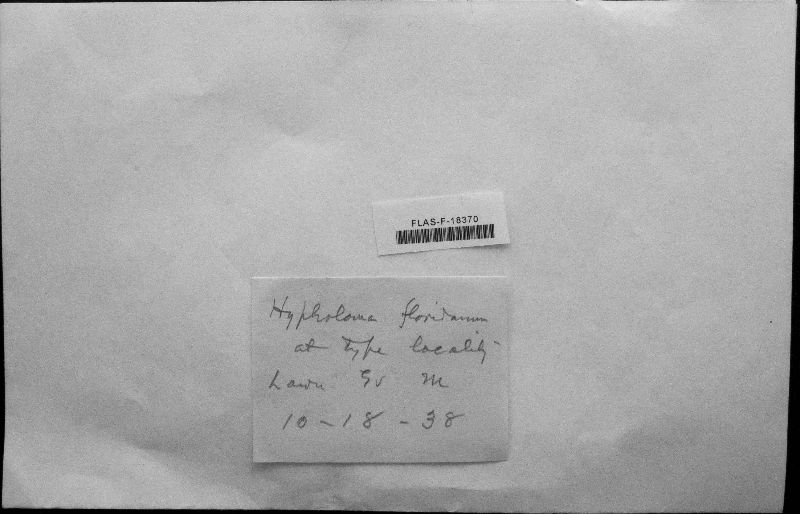 FLAS-F-18370
Hypholoma floridanum
at type locality
Lawn M
10-18-38